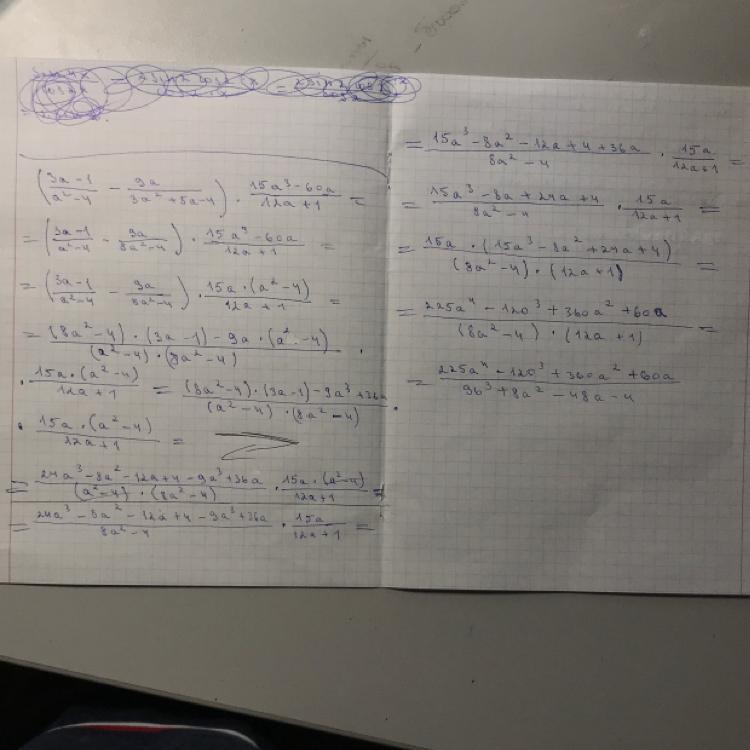 (3a-1/a²-4 - 9a/3a²+5a-4) · 15a³-60a/12a+1 =
= (3a-1/a²-4 - 9a/8a²-4) · 15a³-60a/12a+1 =
= (3a-1/a²-4 - 9a/8a²-4) · 15a·(a²-4)/12a+1 =
= (8a²-4)·(3a-1)-9a·(a²-4)/(a²-4)·(8a²-4) ·
· 15a·(a²-4)/12a+1 = (8a²-4)·(3a-1)-9a³+36a/(a²-4)·(8a²-4) ·
· 15a·(a²-4)/12a+1 =
= 24a³-8a²-12a+4-9a³+36a/(a²-4)·(8a²-4) · 15a·(a²-4)/12a+1 =
= 24a³-8a²-12a+4-9a³+36a/8a²-4 · 15a/12a+1 =
= 15a³-8a²-12a+4+36a/8a²-4 · 15a/12a+1 =
= 15a³-8a+24a+4/8a²-4 · 15a/12a+1 =
= 15a·(15a³-8a²+24a+4)/(8a²-4)·(12a+1) =
= 225a⁴-120³+360a²+60a/(8a²-4)·(12a+1) =
= 225a⁴-120³+360a²+60a/96³+8a²-48a-4